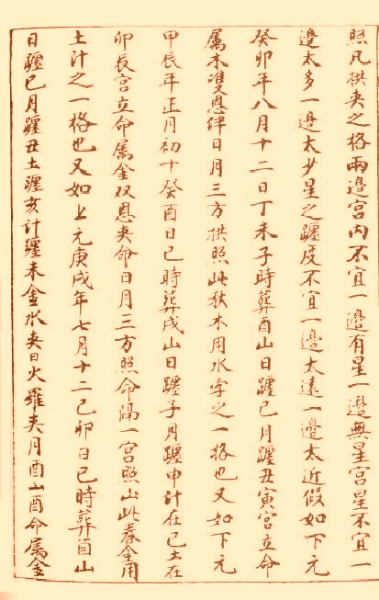 照凡拱夾之格兩邊宮內不宜一邊有星一邊無星宮星不宜一
邊太多一邊太少星之躔度不宜一邊太遠一邊太近假如下元
癸卯年八月十二日丁未子時葬酉山日躔巳月躔丑寅宮立命
属木雙恩伴日月三方拱照此秋木用水孛之一格也又如下元
甲辰年正月初十癸酉日巳時葬戌山日躔子月躔申計在巳土在
卯辰宮立命属金双恩夾命日月三方照命隔一宮照山此春金用
土計之一格也又如上元庚戌年七月十二己卯日巳時葬酉山
日躔巳月躔丑土躔亥計躔未金水夾日火羅夾月酉山酉命属金